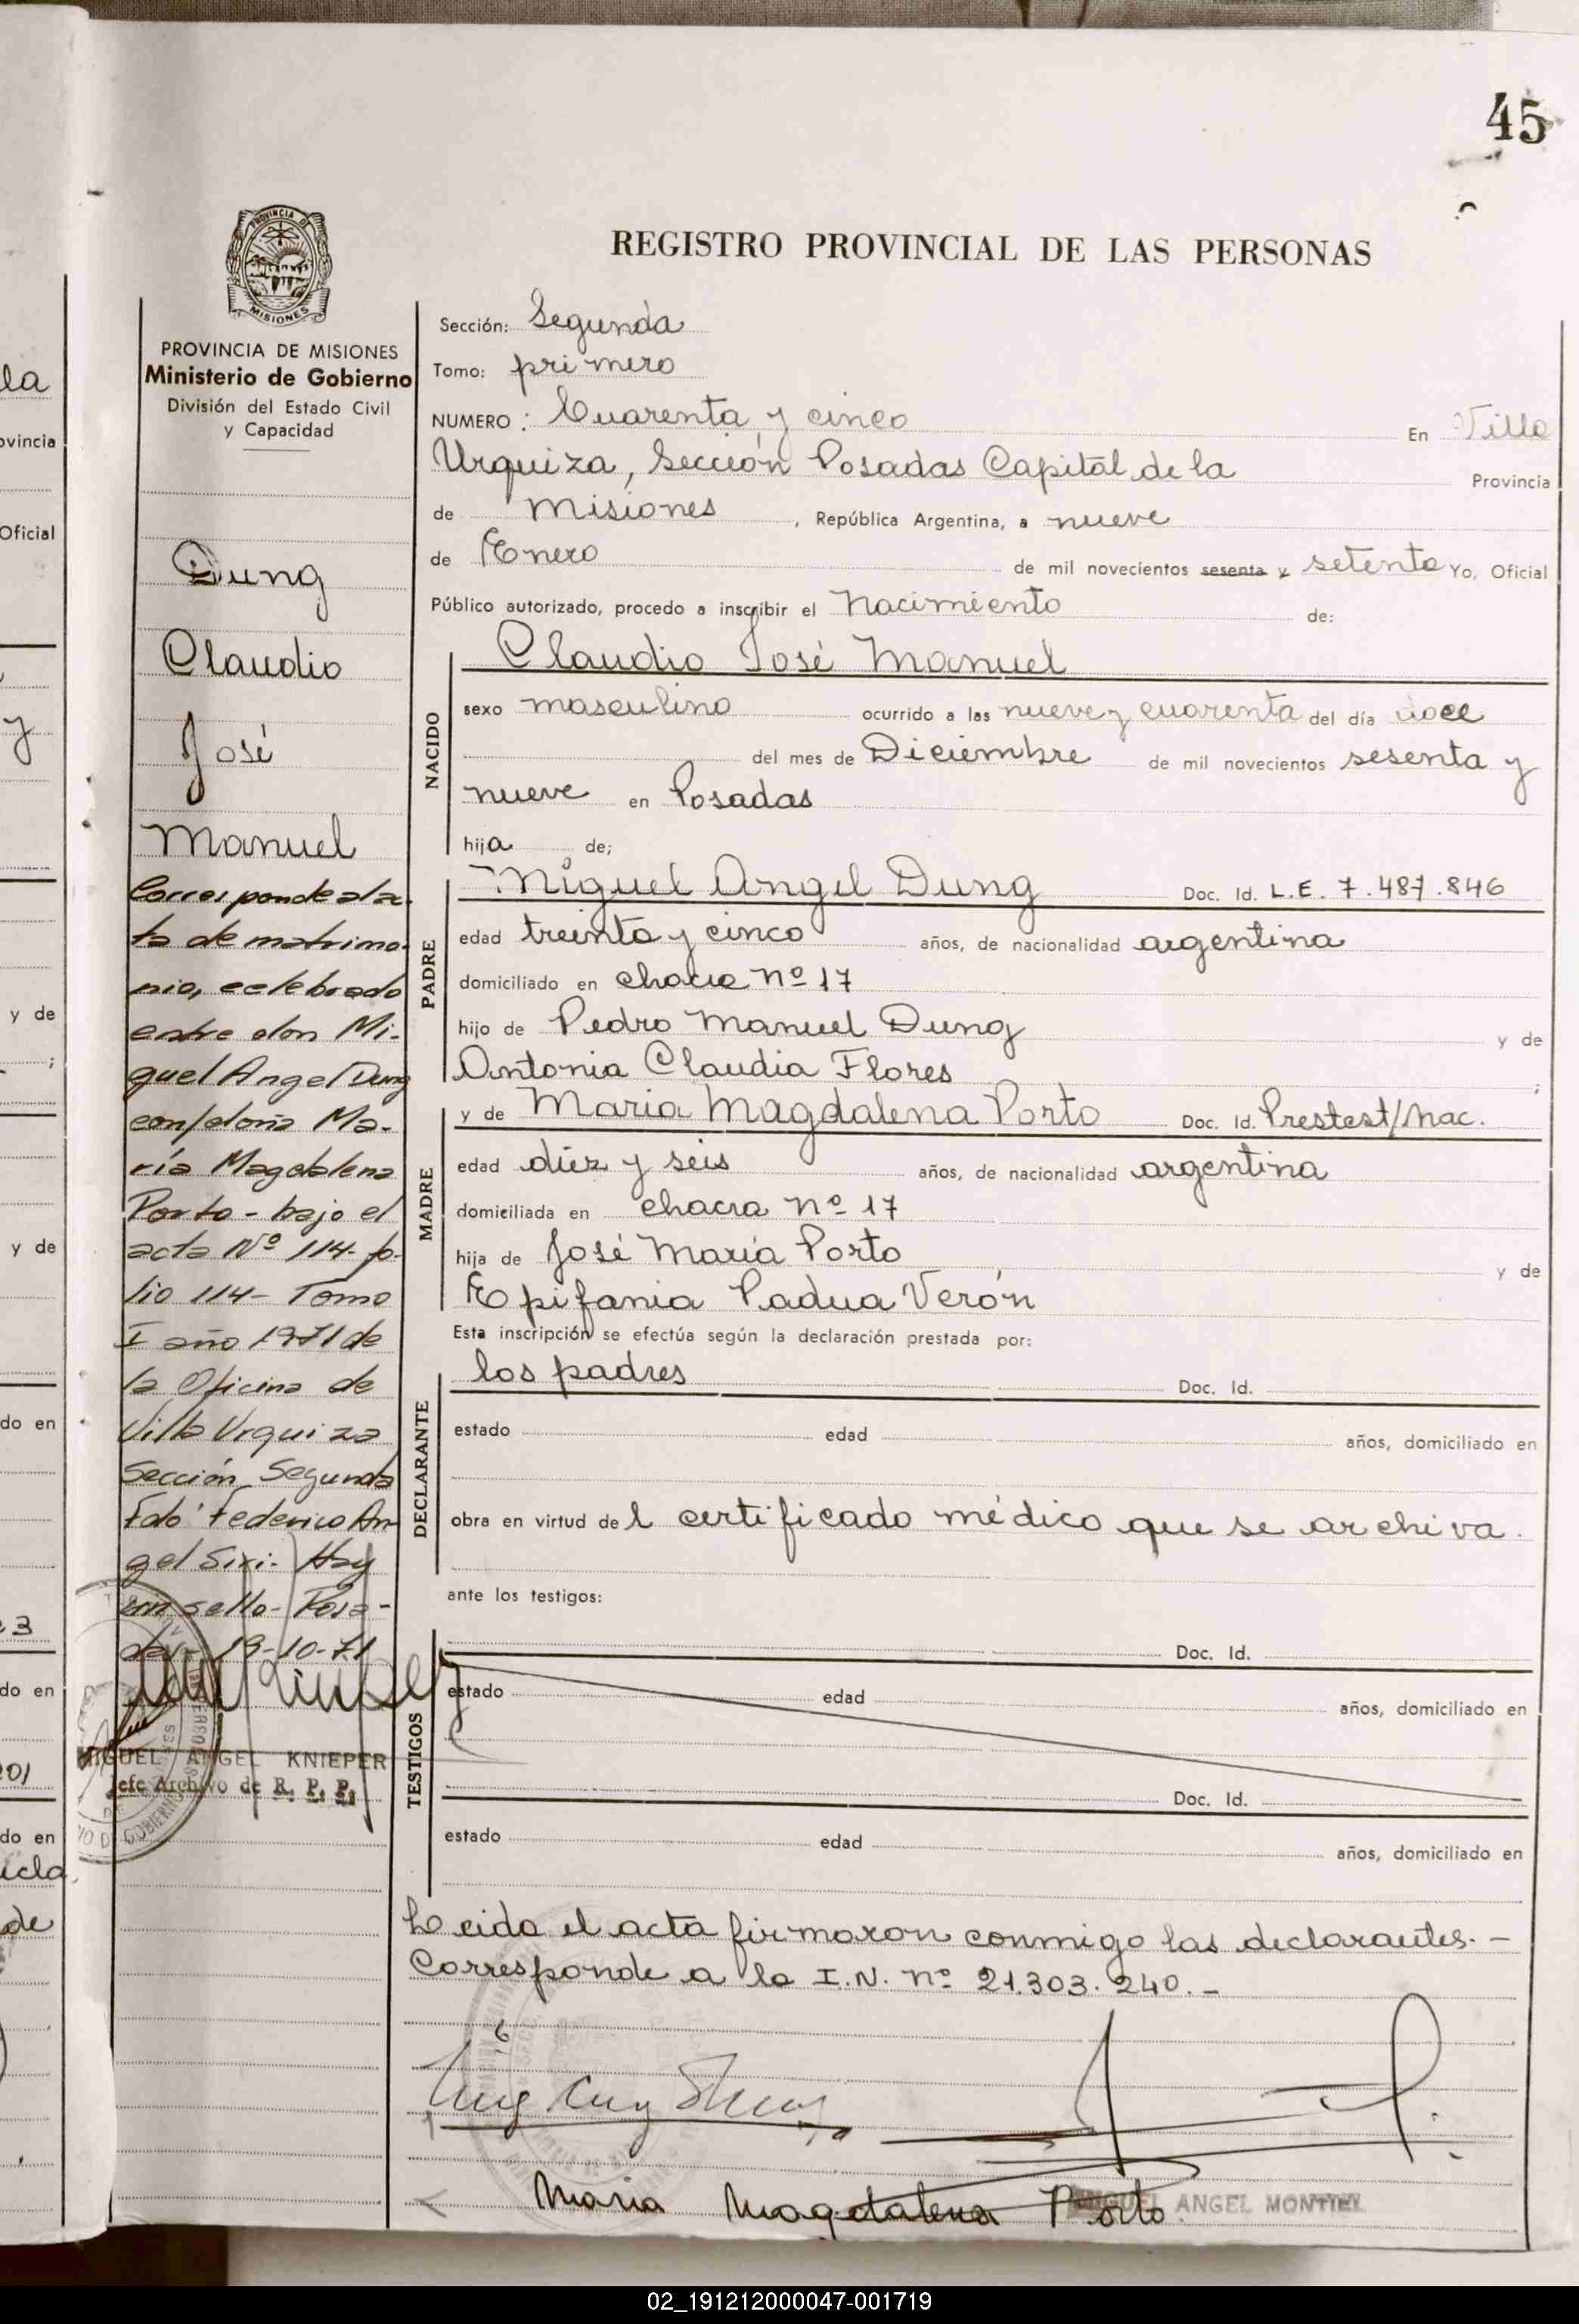 45
PROVINCIA DE MISIONES
Ministerio de Gobierno
División del Estado Civil
y Capacidad
Dung
Claudio
José
Manuel
Corresponde al ac
ta de matrimo-
nio, celebrado
entre don Mi-
guel Angel Dung
con/doña Ma-
ría Magdalena
Porto - bajo el
acta Nº 114 - fo-
lio 114 - Tomo
I año 1971 de
la Oficina de
Villa Urquiza
Sección Segunda
Fdo' Federico An
gel Sixi - Hay
un sello - Posa-
das - 19-10-71
MIGUEL ANGEL KNIEPER
Jefe Archivo de R. P. P.
REGISTRO PROVINCIAL DE LAS PERSONAS
Sección: Segunda
Tomo: primero
NUMERO: Cuarenta y cinco En Villa
Urquiza, Sección Posadas Capital de la Provincia
de Misiones, República Argentina, a nueve
de Enero de mil novecientos sesenta y setenta Yo, Oficial
Público autorizado, procedo a inscribir el Nacimiento de:
NACIDO
Claudio José Manuel
sexo masculino ocurrido a las nueve y cuarenta del día doce
del mes de Diciembre de mil novecientos sesenta y
nueve en Posadas
hija de;
PADRE
Miguel Angel Dung Doc. Id. L.E. 7.487.846
edad treinta y cinco años, de nacionalidad argentina
domiciliado en chacra nº 17
hijo de Pedro Manuel Dung y de
Antonia Claudia Flores ;
MADRE
y de Maria Magdalena Porto Doc. Id. Prestest/Nac.
edad diez y seis años, de nacionalidad argentina
domiciliada en chacra nº 17
hija de José María Porto y de
Epifania Padua Verón
Esta inscripción se efectúa según la declaración prestada por:
DECLARANTE
los padres Doc. Id.
estado edad años, domiciliado en
obra en virtud del certificado médico que se archiva.
ante los testigos:
TESTIGOS
Doc. Id.
estado edad años, domiciliado en
Doc. Id.
estado edad años, domiciliado en
Leida el acta firmaron conmigo los declarantes. -
Corresponde a la I.N. nº 21.303.240. -
Maria Magdalena Porto
MIGUEL ANGEL MONTIEL
02_191212000047-001719